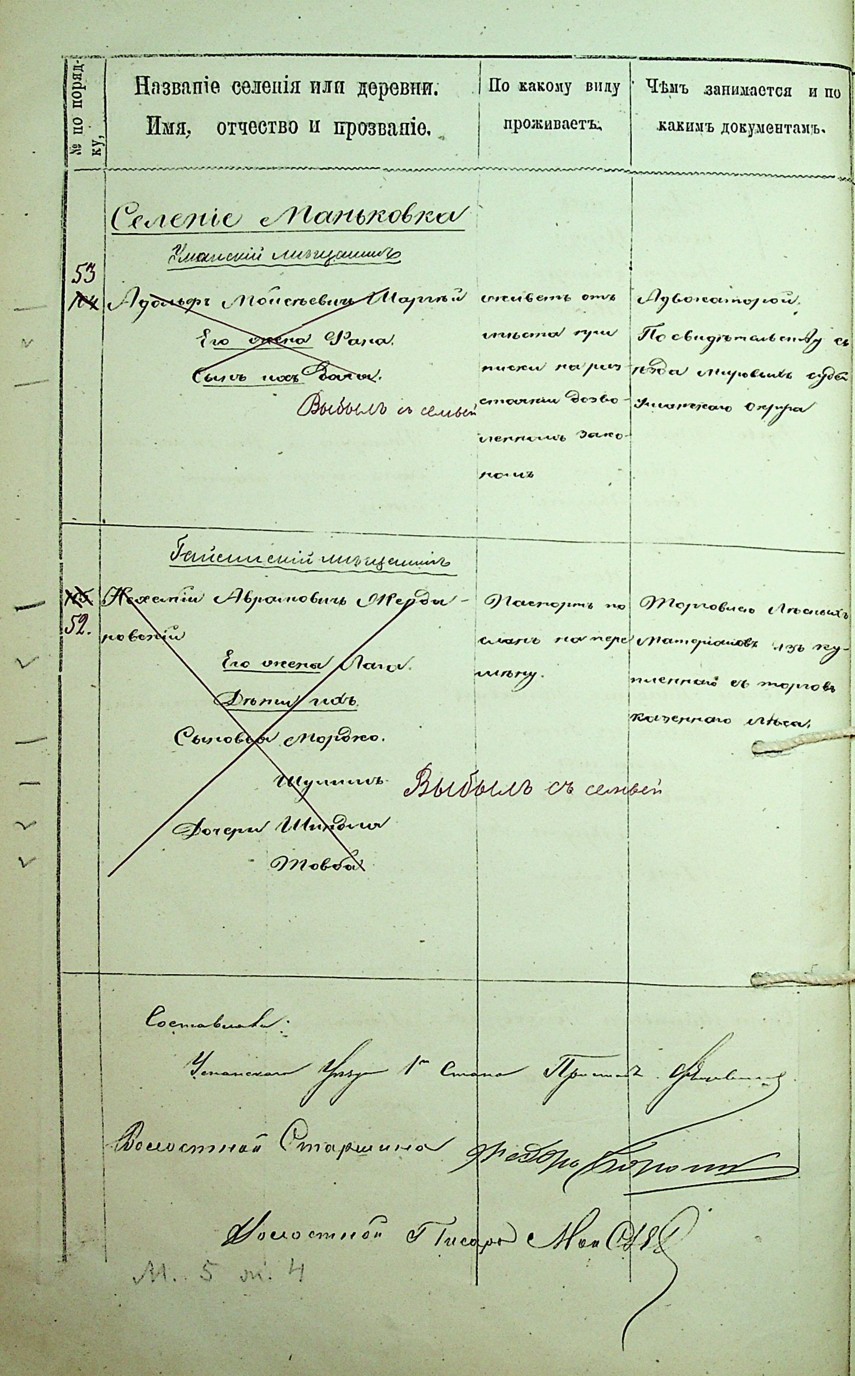 № по поряд-
ку,
Названіе селенія или деревни.
Имя, отчество и прозваніе.
По какому виду
проживаетъ.
Чѣмъ занимается и по
какимъ документамъ.
Селеніе Маньковка
Уманскій мѣщанинъ
53
Адольфъ Мойсѣевичъ
Его жена Рана.
Сынъ ихъ
Выбылъ съ семьей
живетъ отъ
мѣста при
писки на раз
стояніи дозво-
ленномъ зако-
номъ
Адвокатурой.
По свидѣтельству съ
ѣзда Мировыхъ судей
Уманскаго округа
Гайсинскій мѣщанинъ
52.
Аврамовичъ Жерда-
новскій
Его жена Лага.
Дѣти ихъ.
Сыновья Мордко.
Шулимъ
Выбылъ съ семьей
Дочери Шиндля
Товба
Паспортъ по
сланъ на пере
мѣну.
Торговлею Лѣсныхъ
Матеріаловъ изъ ку-
пленнаго съ торговъ
казеннаго лѣса.
Составили:
Уманскаго Уѣзда 1го Стана Приставъ
Волостной Старшина Федоръ
Волостной Писарь
М. 5 ж. 4